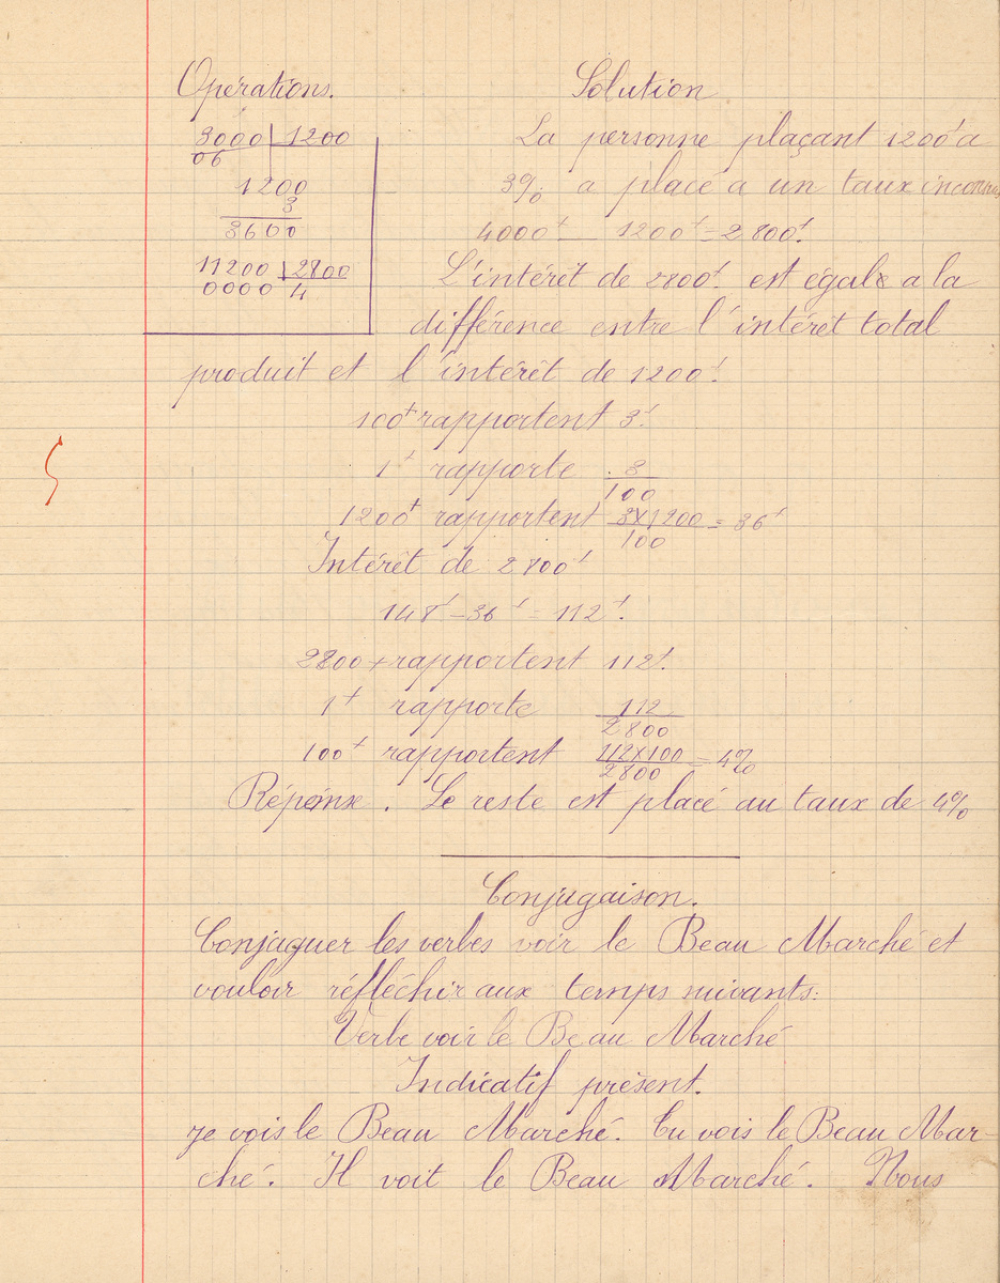 Opérations.
3000 | 1200
06
1200
3
3600
11200 | 2800
0000 4
Solution
La personne plaçant 1200f a
3% a placé a un taux inconnu
4000f — 1200f = 2800f.
L'intérêt de 2800f. est égale a la
différence entre l'intérêt total
produit et l'intérêt de 1200f.
100f rapportent 3f.
1f rapporte 3/100
1200f rapportent 3x1200/100 = 36f
Intérêt de 2800f
148f - 36f = 112f.
2800f rapportent 112f.
1f rapporte 112/2800
100f rapportent 112x100/2800 = 4%
Réponse. Le reste est placé au taux de 4%
Conjugaison.
Conjuguer les verbes voir le Beau Marché et
vouloir réfléchir aux temps suivants:
Verbe voir le Beau Marché
Indicatif présent.
Je vois le Beau Marché. Tu vois le Beau Mar-
ché. Il voit le Beau Marché. Nous